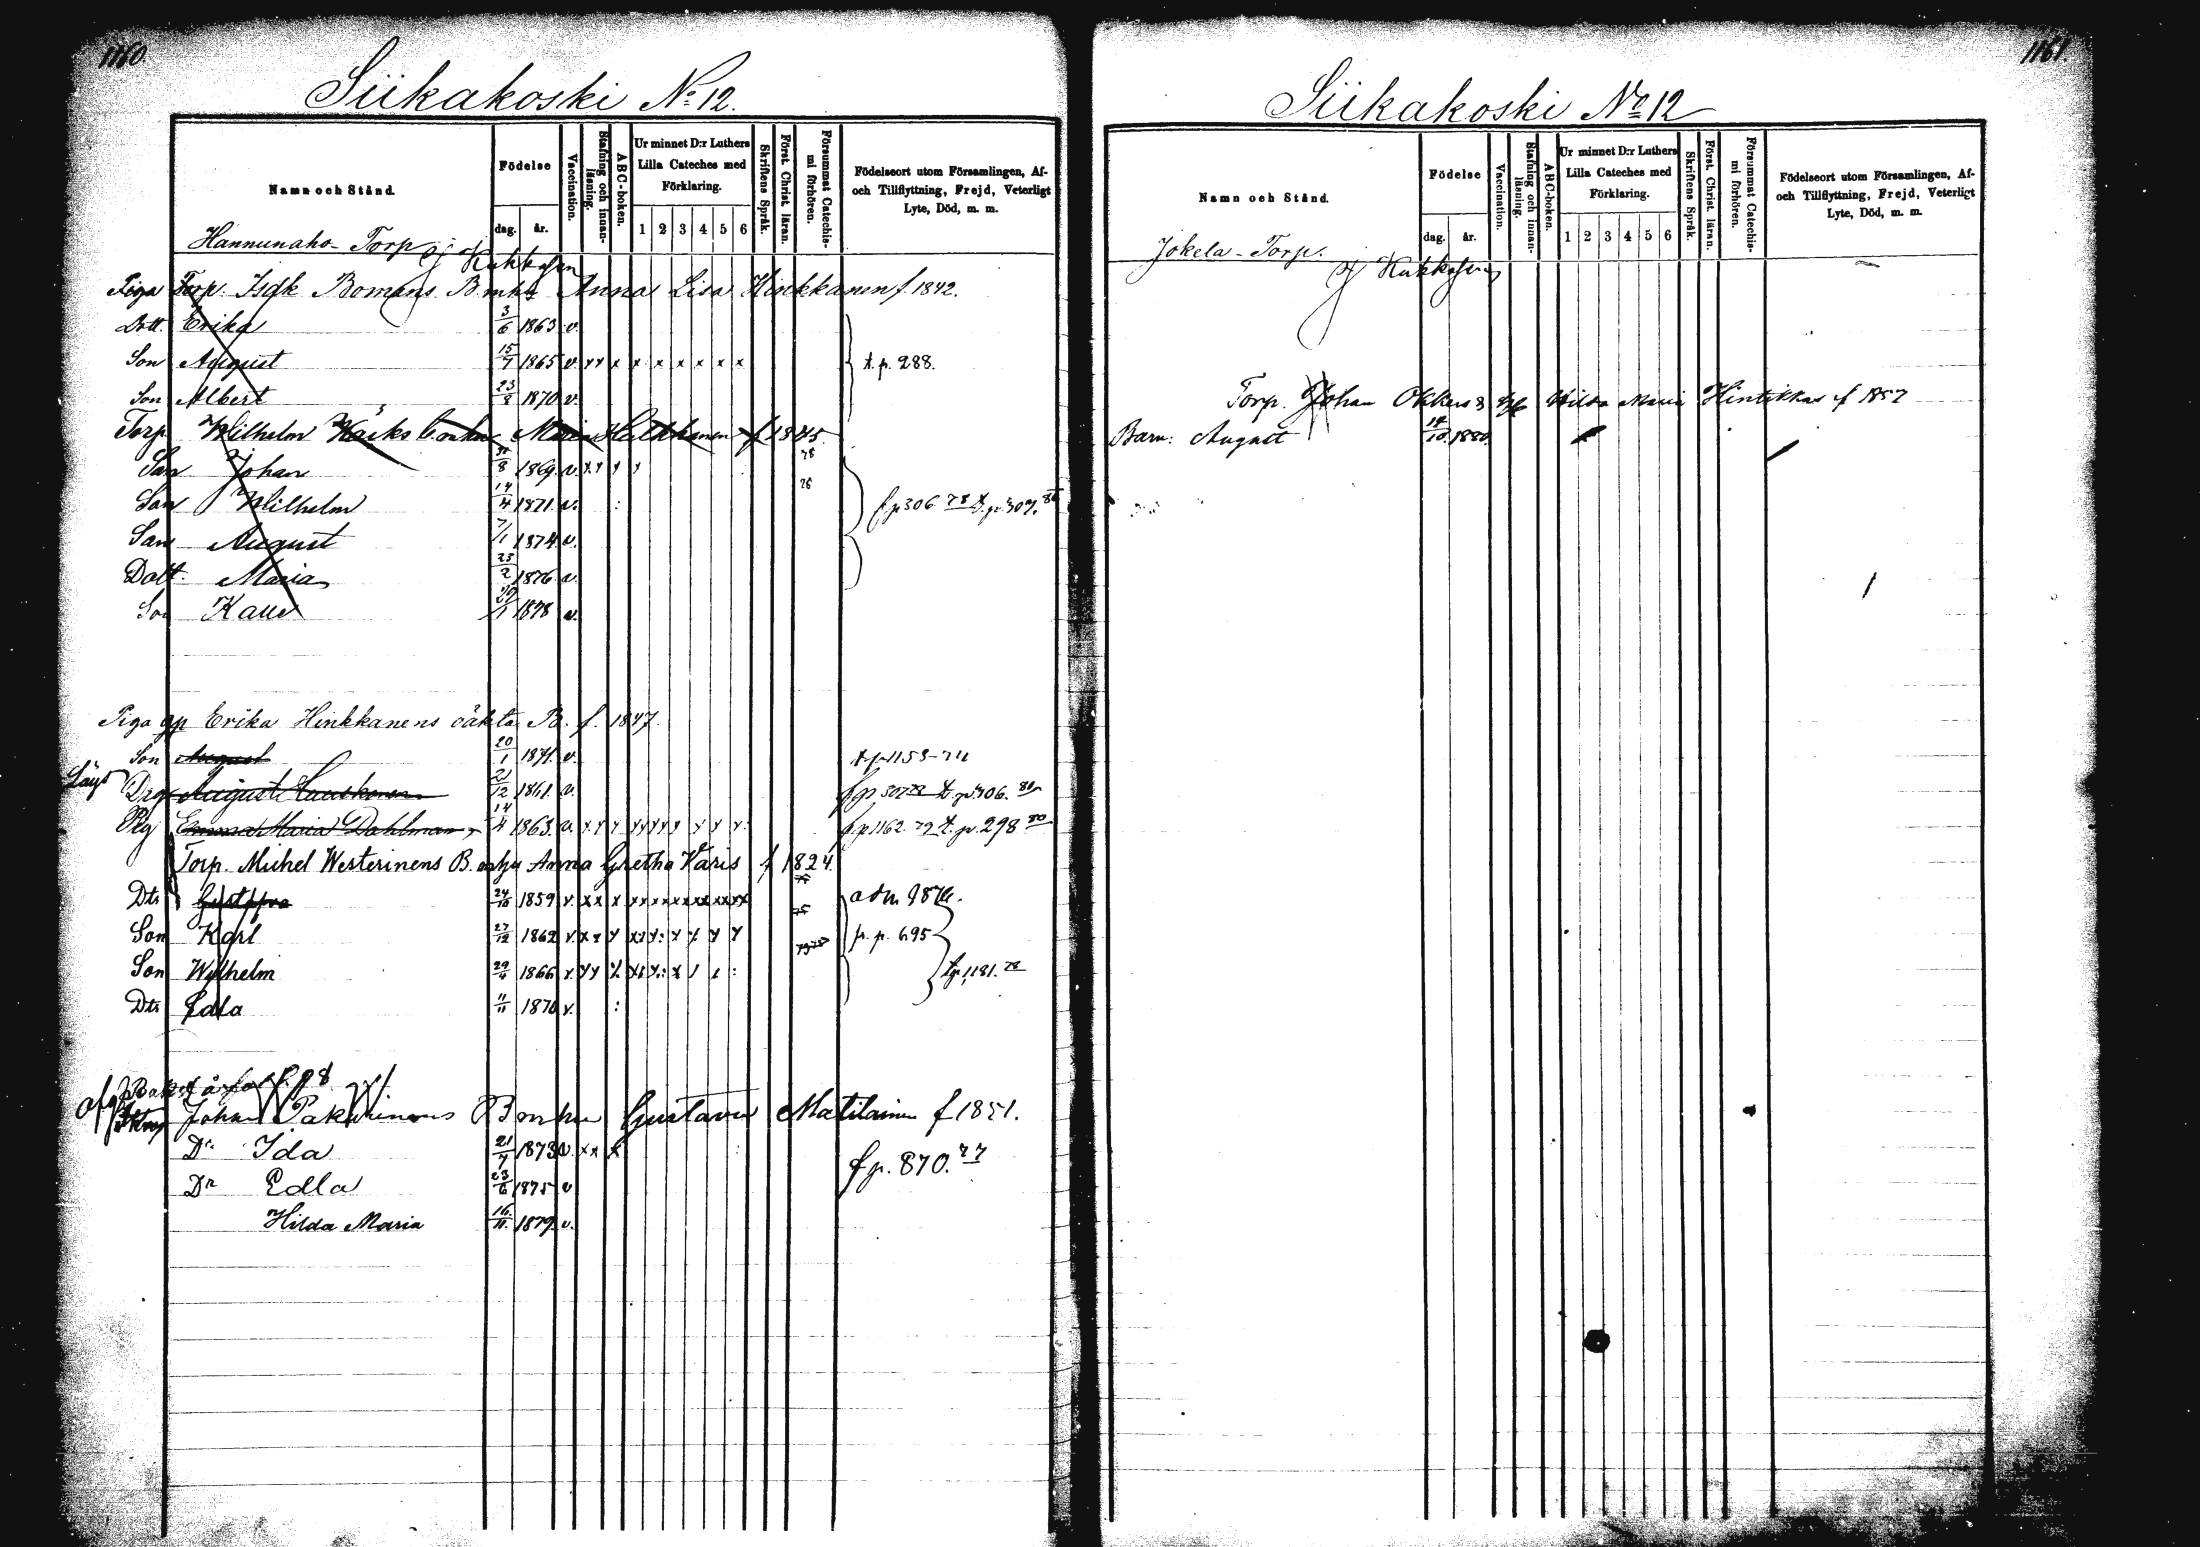 1160.
Siikakoski No 12.
Namn och Stånd.
Födelse
dag. år.
Vaccination.
Stafning och innanläsning.
ABC-boken.
Ur minnet D:r Luthers Lilla Cateches med Förklaring.
1 2 3 4 5 6
Skriftens Språk.
Först. Christ. läran.
Försummat Catechismi förhören.
Födelseort utom Församlingen, Af- och Tillflyttning, Frejd, Veterligt Lyte, Död, m. m.
Hannunaho- Torp af Kukkosen
Piga Torp. Isak Bomans B mhu Anna Lisa Hinkkanen f. 1842.
Dott. Erika 3/6 1863 v.
Son August 15/7 1865 v. x x x x x x x x x t. p. 288.
Son Albert 23/8 1870 v.
Torp Wilhelm Maria f 1845
Son Johan 8 1869 v. x x x x 78
Son Wilhelm 14/4 1871 v. : 78 f p 306 78 t. p. 307. 80
Son August 7/1 1874 v.
Dott. Maria 23/2 1876 v.
Son Kalle 1 1878 v.
Piga gp Erika Hinkkanens oäkta B. f. 1847.
Son August 20/1 1871. v. t p 1153-74
Drg August 21/12 1861. v. t. p. 306. 80
Pig Emma Maria Dahlman 14/4 1863. v. x x x x x x x x x x x f p 1162. 79 t. p. 298 80
Torp. Michel Westerinens B. mhu Anna Gretha Varis f 1824.
Dtr Gustafva 24/10 1859 v. x x x x x x x x x x x x x adm. 1876.
Son Karl 27/12 1862 v. x x x x x x : x x x x fr. p. 695
Son Wilhelm 29/4 1866 v. x x x x x : x t p. 1181. 78
Dtr Edla 11/11 1870 v. :
Johan Pakarinens B mhu Gustava Matilainen f 1851.
Dr Ida 21/7 1873 v. x x x f p. 870. 77
Dr Edla 23/6 1875 v
Hilda Maria 16/11. 1879. v.
1161.
Siikakoski No 12
Namn och Stånd.
Födelse
dag. år.
Vaccination.
Stafning och innanläsning.
ABC-boken.
Ur minnet D:r Luthers Lilla Cateches med Förklaring.
1 2 3 4 5 6
Skriftens Språk.
Först. Christ. läran.
Försummat Catechismi förhören.
Födelseort utom Församlingen, Af- och Tillflyttning, Frejd, Veterligt Lyte, Död, m. m.
Jokela- Torp. af Kukkosens
Torp. Johan Hilda Maria Hintikkas f 1857
Barn: August 14/10. 1880.